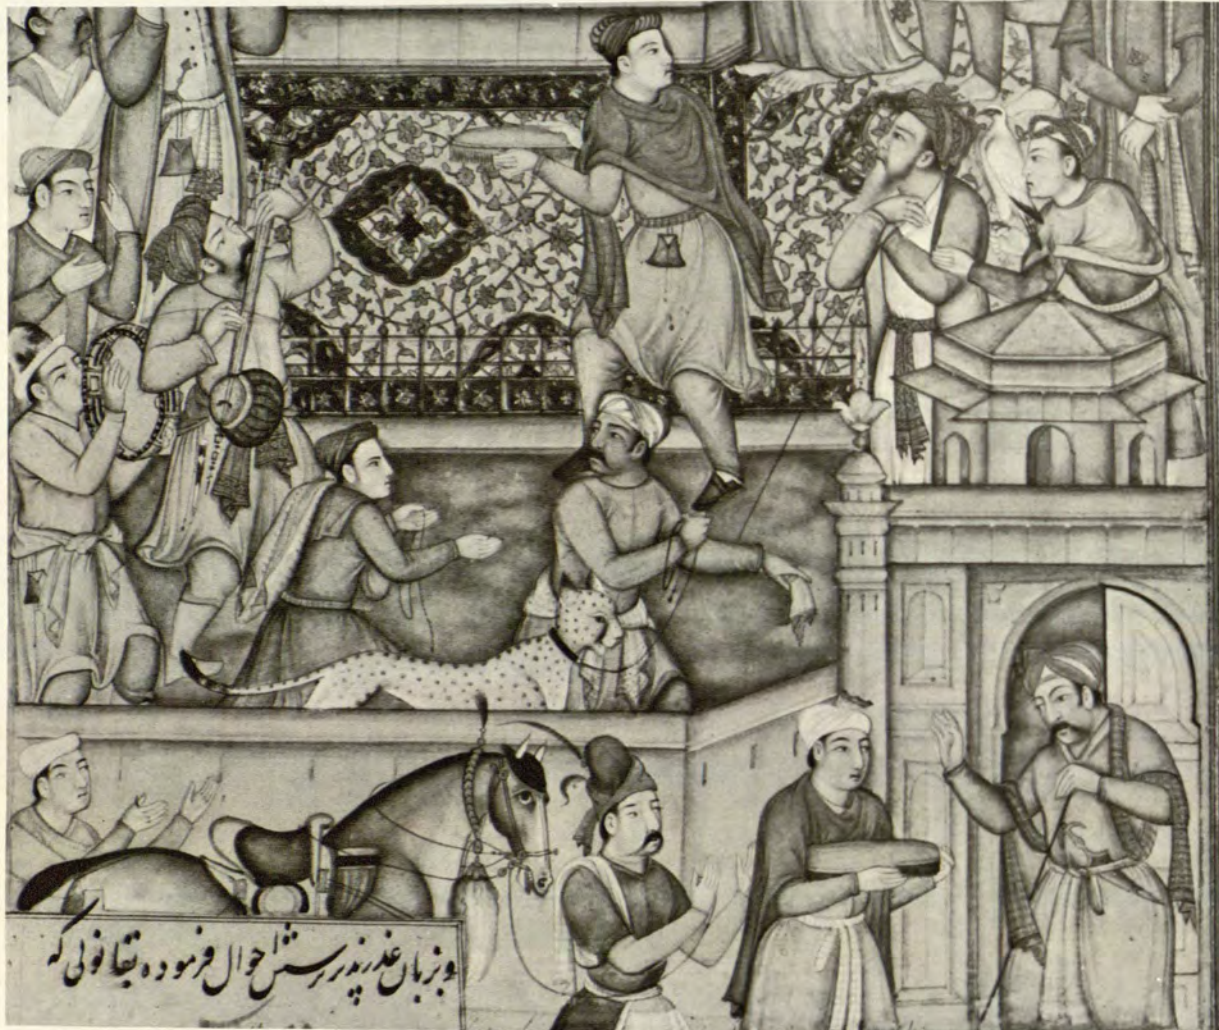 و بزبان عذر پذیر پرسش احوال فرموده بقانونی که